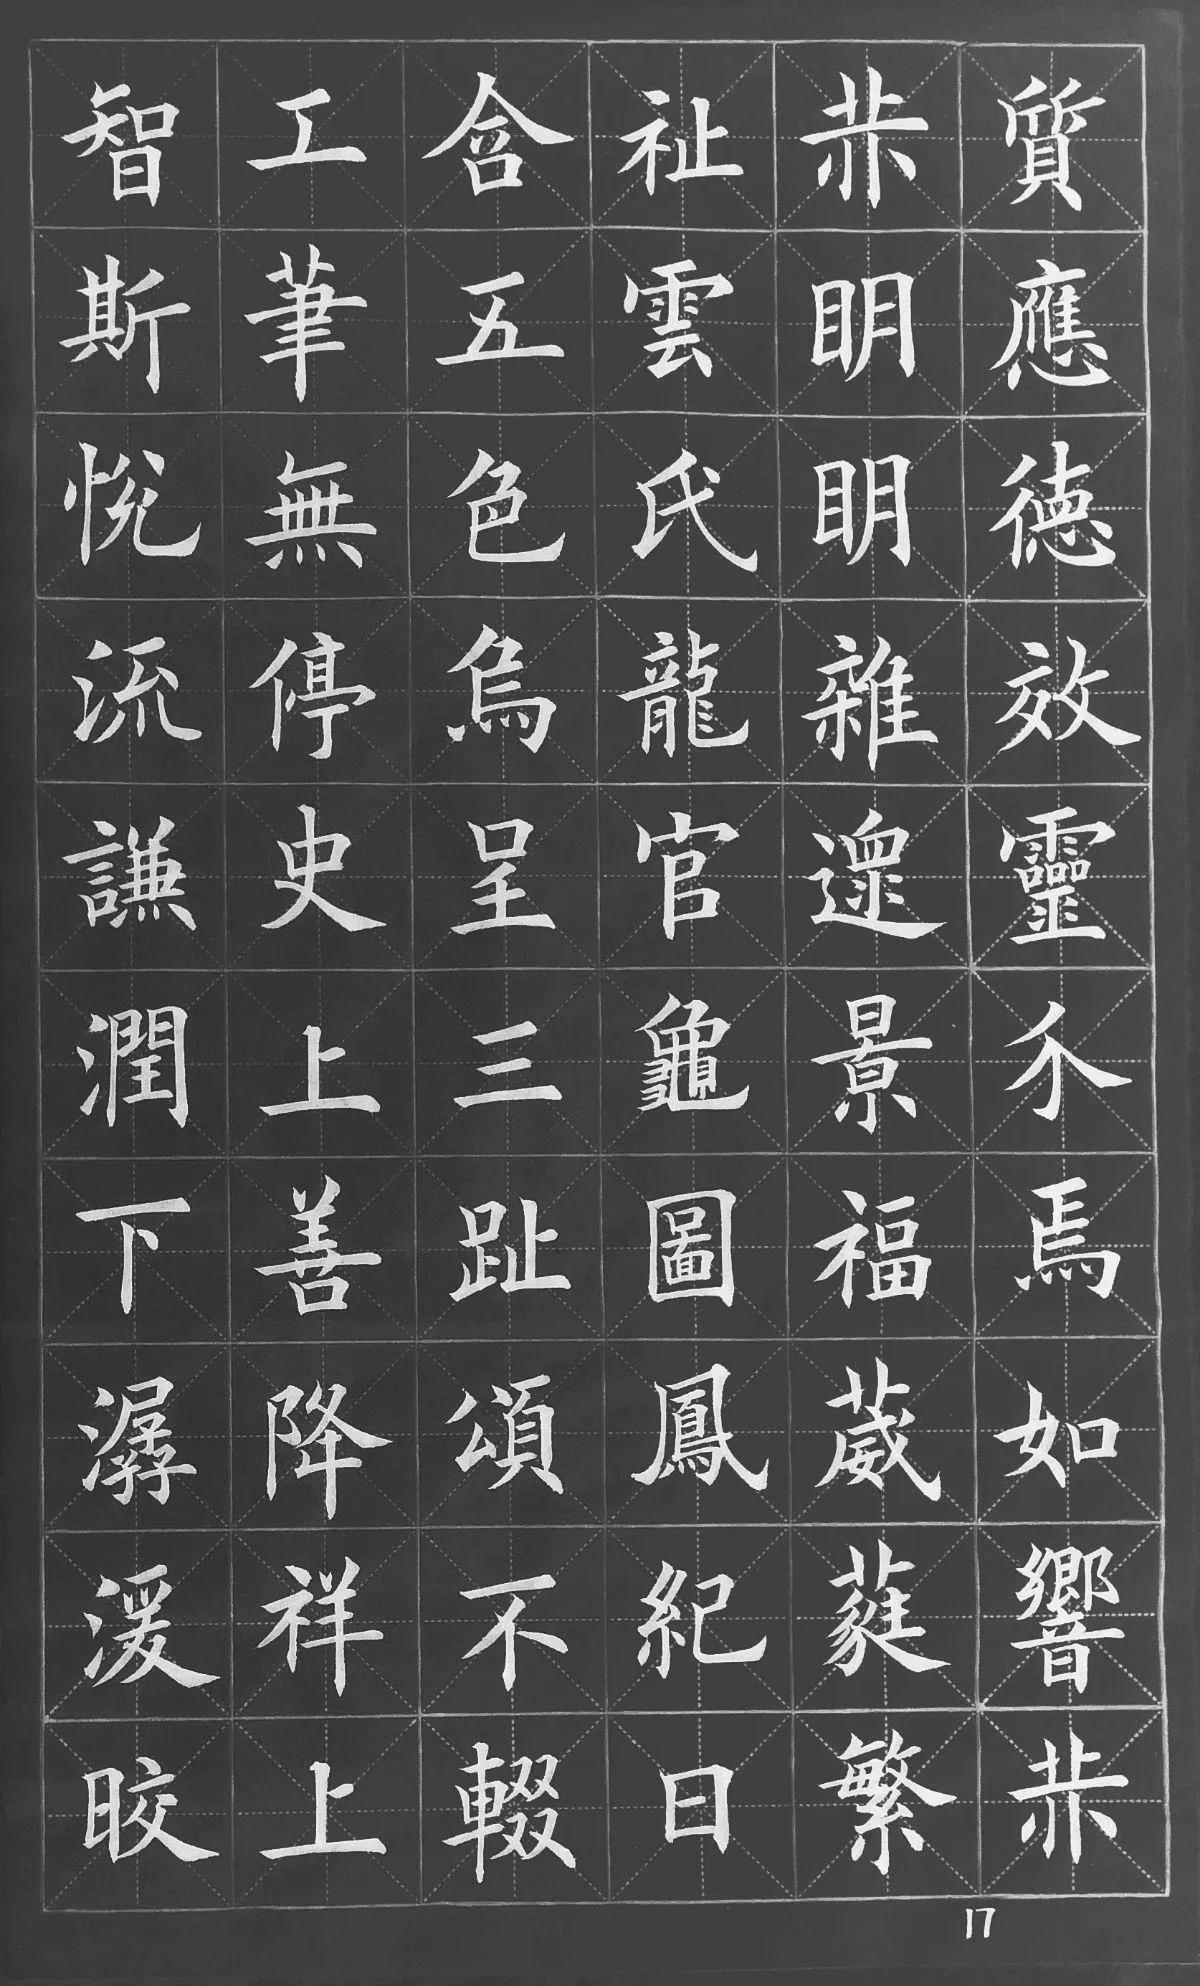 質應德效靈介焉如響赫
赫眀眀雜遝景福葳蕤繁
祉雲氏龍官龜圖鳳紀日
含五色烏呈三趾頌不輟
工筆無停史上善降祥上
智斯悅流謙潤下潺湲晈
17